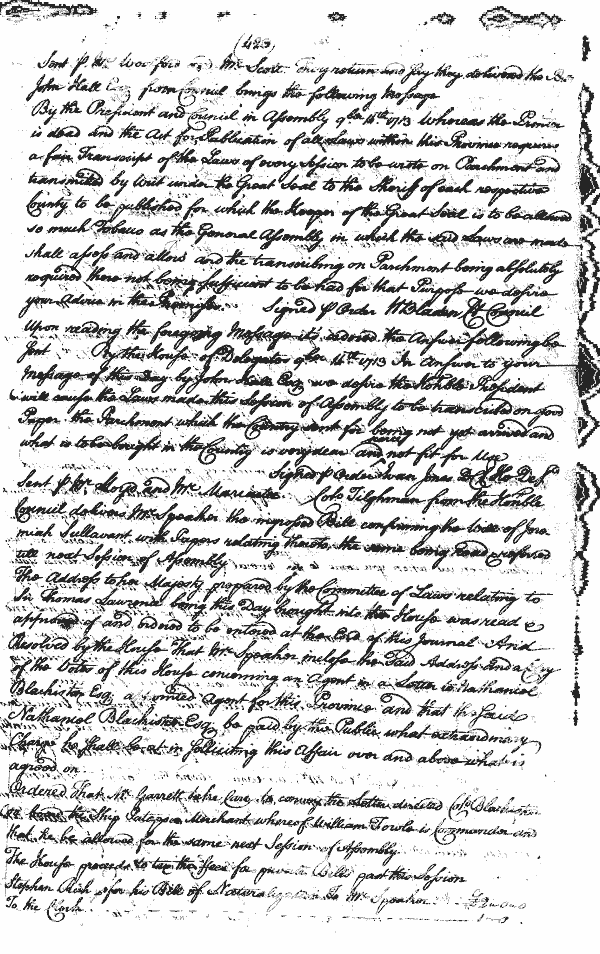 (423)
Sent p Mr. Wooford and Mr. Scott. They return and say they delivered the
John Hall Esq from Council brings the following Message
By the President and Council in Assembly 9ber 14th 1713 Whereas the Printer
is dead and the Act for Publication of all Laws within this Province requires
a fair Transcript of the Laws of every Session to be wrote on Parchment and
transmitted by Writ under the Great Seal to the Sheriff of each respective
County to be published for which the Keeper of the Great Seal is to be allowed
so much Tobacco as the General Assembly in which the said Laws are made
shall assess and allow and the transcribing on Parchment being absolutely
required there not being sufficient to be had for that Purpose we desire
your Advice in the Premisses. Signed p Order W Bladen Cl Council
Upon reading the foregoing Message its ordered the Answer following be
Sent By the House of Delegates 9ber 14th 1713 In Answer to your
Message of this Day by John Hall Esq we desire the Honble President
will cause the Laws made this Session of Assembly to be transcribed on good
Paper the Parchment which the Country sent for being not yet arrived and
what is to be bought in the Country is very dear and not fit for Use
Signed p Order Richan Jones Cl Ho Del
Sent p Mr. Lloyd and Mr. Mariartee. Colo Tilghman from the Honble
Council delivers Mr Speaker the ingrossed Bill confirming the Sale of Jere
miah Sullavant with Papers relating thereto, the same being read referred
till next Session of Assembly
The Address to her Majesty prepared by the Committee of Laws relating to
Sir Thomas Lawrence being this Day brought into the House was read &
approved of and ordered to be entered at the End of this Journal And
Resolved by the House That Mr Speaker inclose the said Address and a Copy
of the Votes of this House concerning an Agent in a Letter to Nathaniel
Blackiston Esq. appointed Agent for this Province and that the said
Nathaniel Blackiston Esq. be paid by the Public what extraordinary
Charge he shall be at in solliciting this Affair over and above what is
agreed on
Ordered That Mr Garrett take Care to convey the Letter directed Colo Blackiston
the Ship Patapsco Merchant whereof William Fowls is Commander and
that he be allowed for the same next Session of Assembly
The House proceeds to tax the Fees for private Bills past this Session
Stephen Rich for his Bill of Naturaligation To Mr Speaker
To the Clerk